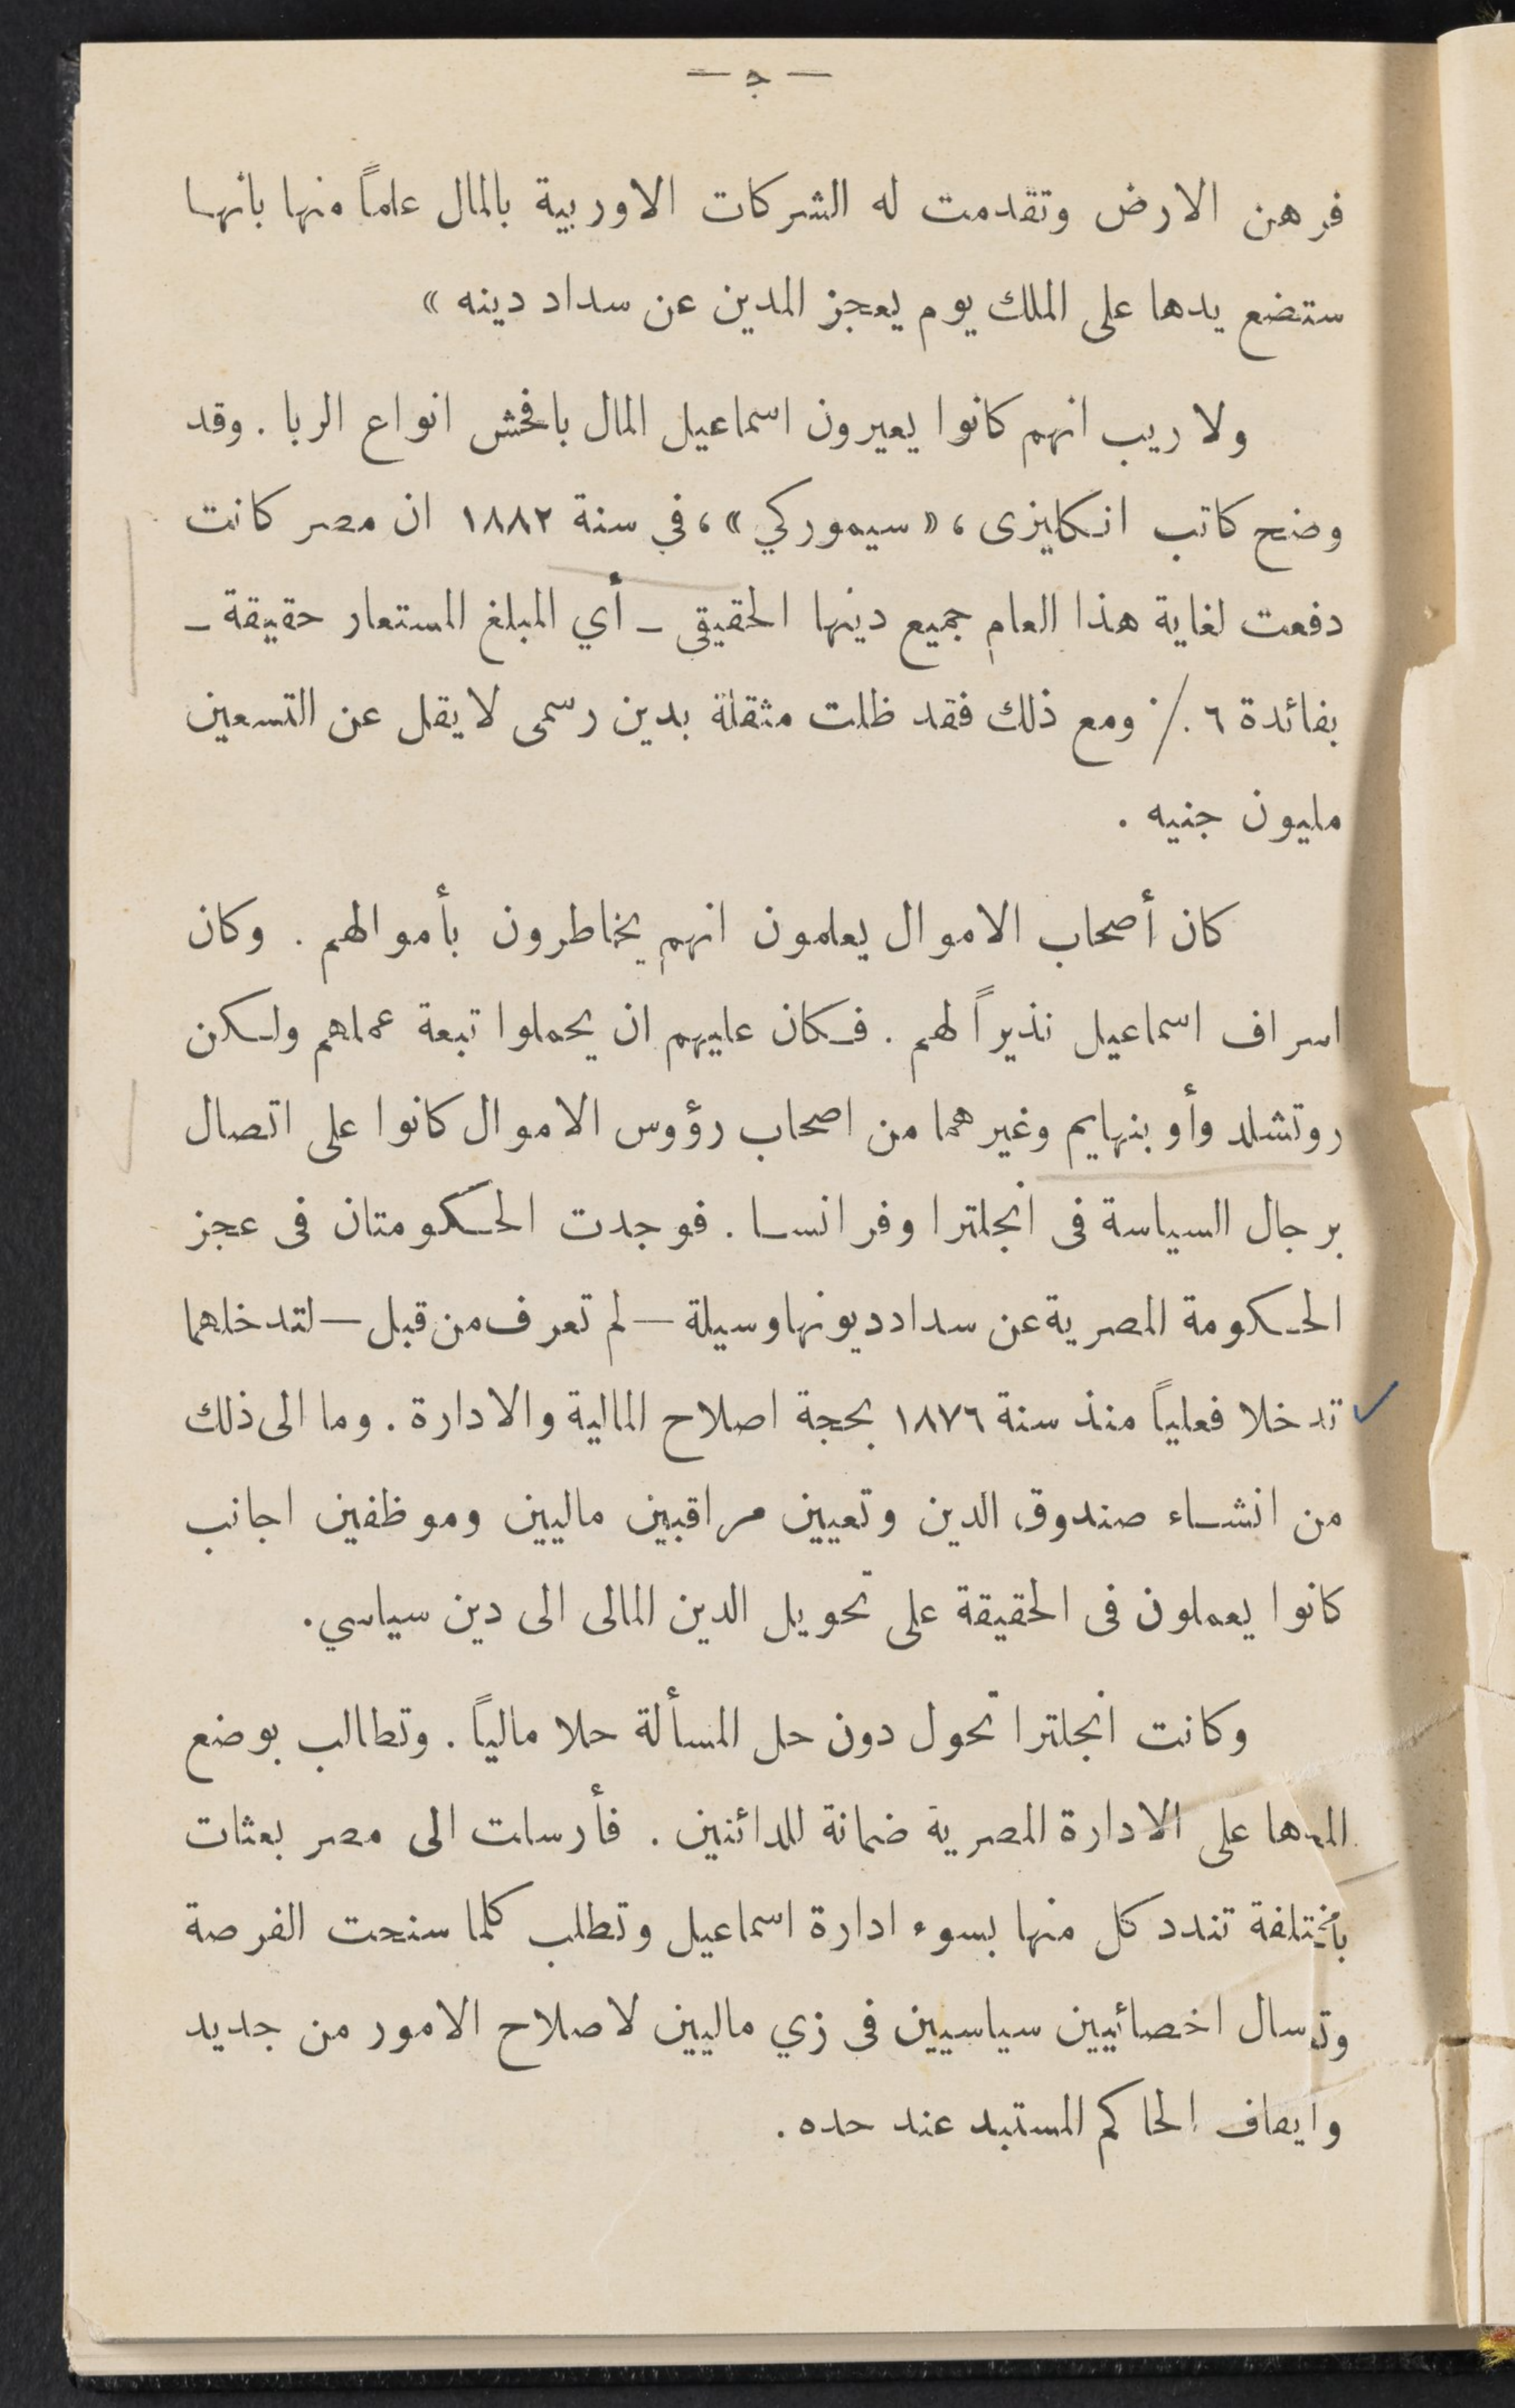 — ج —
فرهن الارض وتقدمت له الشركات الاوربية بالمال علماً منها بأنها
ستضع يدها على الملك يوم يعجز المدين عن سداد دينه »
ولا ريب انهم كانوا يعيرون اسماعيل المال بافحش انواع الربا . وقد
وضح كاتب انكليزى ، « سيموركي » ، في سنة ١٨٨٢ ان مصر كانت
دفعت لغاية هذا العام جميع دينها الحقيقى – أي المبلغ المستعار حقيقة –
بفائدة ٦ ٪ ومع ذلك فقد ظلت مثقلة بدين رسمى لا يقل عن التسعين
مليون جنيه .
كان أصحاب الاموال يعلمون انهم يخاطرون بأموالهم . وكان
اسراف اسماعيل نذيراً لهم . فكان عليهم ان يحملوا تبعة عملهم ولكن
روتشلد وأوبنهايم وغيرهما من اصحاب رؤوس الاموال كانوا على اتصال
برجال السياسة فى انجلترا وفرانسا . فوجدت الحكومتان فى عجز
الحكومة المصرية عن سداد ديونها وسيلة — لم تعرف من قبل — لتدخلهما
تدخلا فعلياً منذ سنة ١٨٧٦ بحجة اصلاح المالية والادارة . وما الى ذلك
من انشاء صندوق الدين وتعيين مراقبين ماليين وموظفين اجانب
كانوا يعملون فى الحقيقة على تحويل الدين المالى الى دين سياسي .
وكانت انجلترا تحول دون حل المسألة حلا مالياً . وتطالب بوضع
على الادارة المصرية ضمانة للدائنين . فأرسلت الى مصر بعثات
تندد كل منها بسوء ادارة اسماعيل وتطلب كلما سنحت الفرصة
اخصائيين سياسيين فى زي ماليين لاصلاح الامور من جديد
وايقاف الحاكم المستبد عند حده .